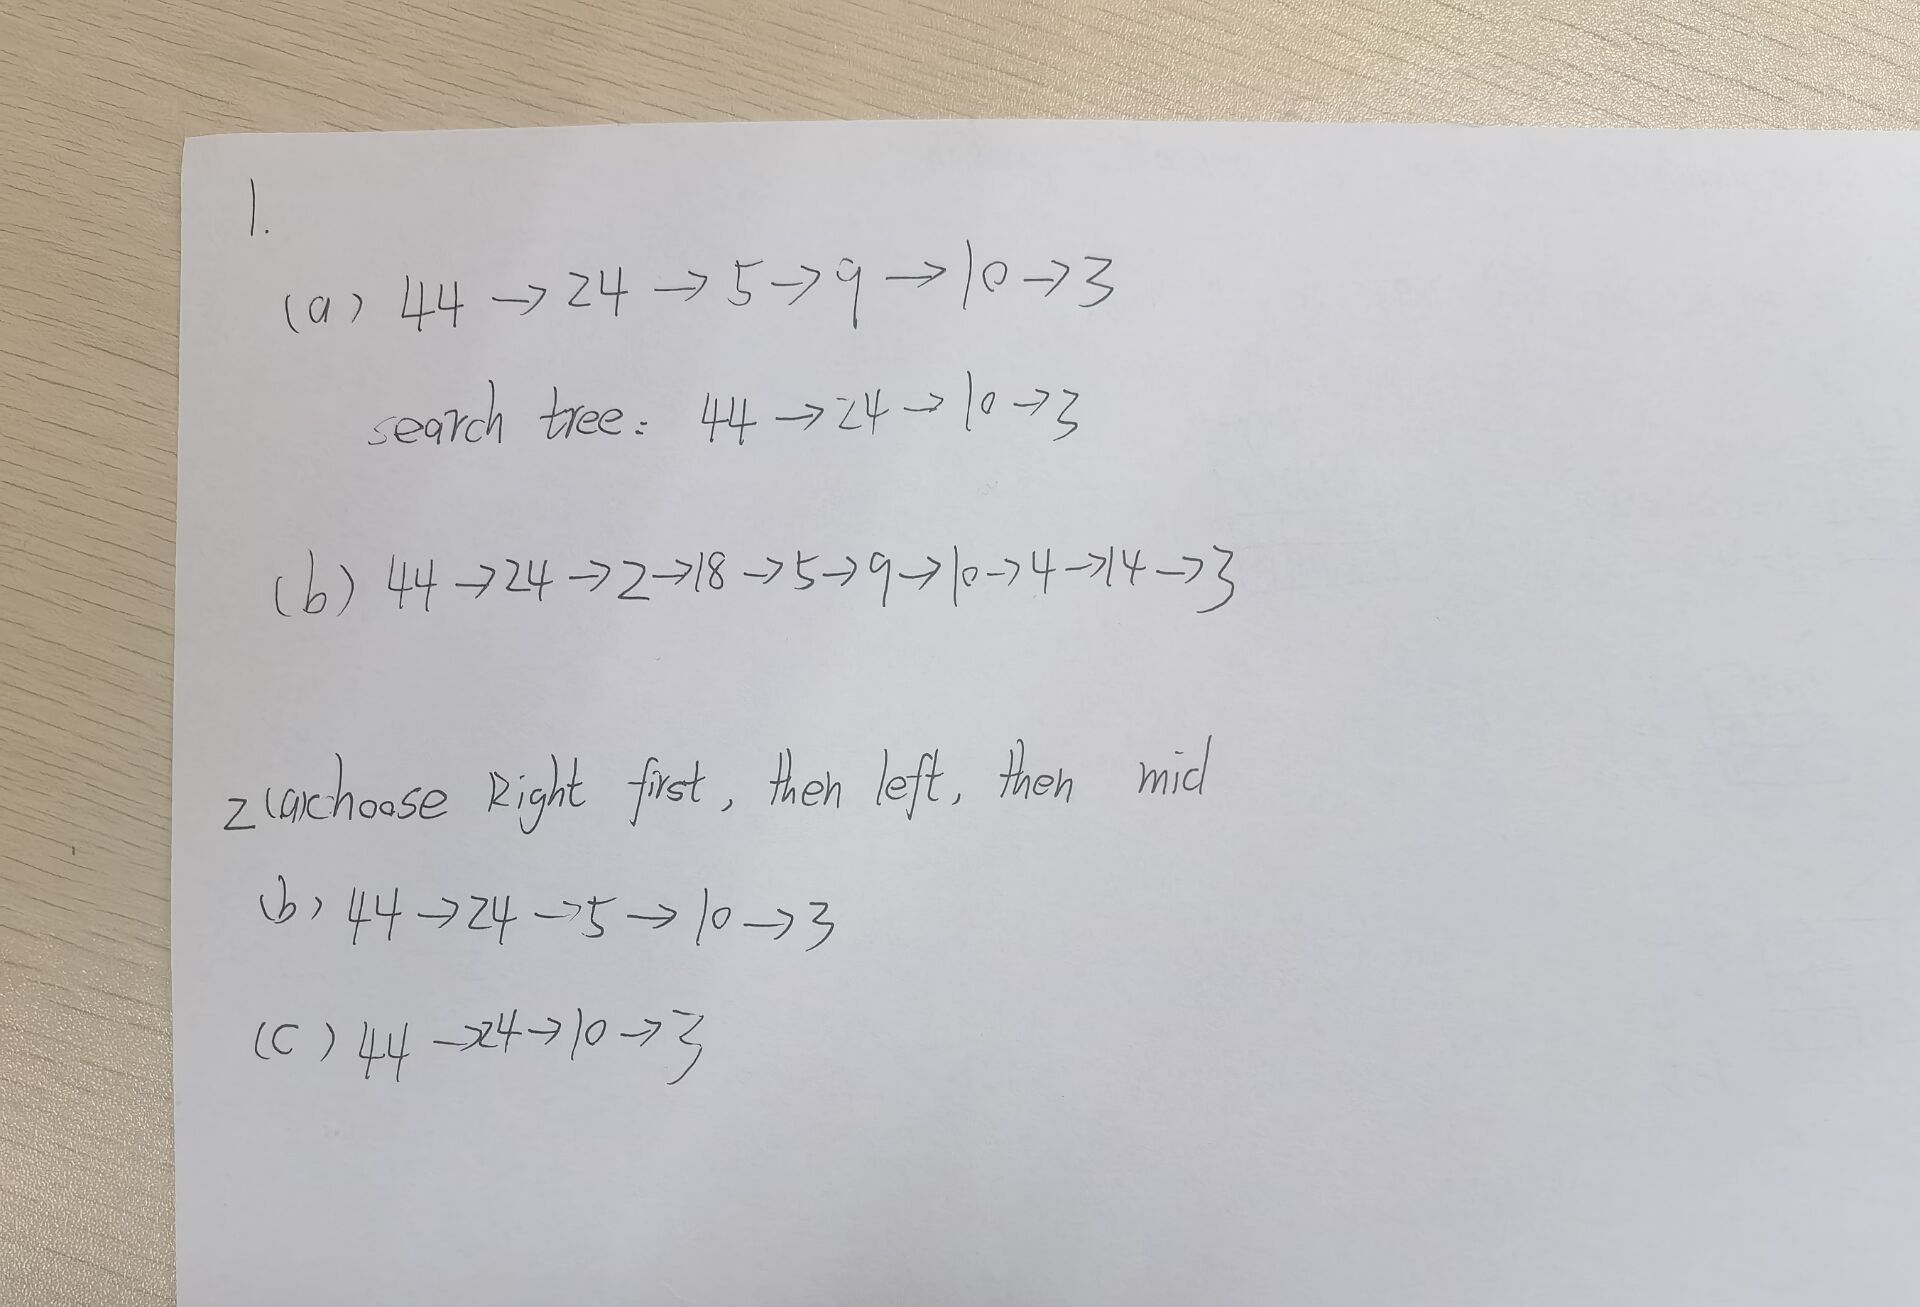 1.
(a) 44 → 24 → 5 → 9 → 10 → 3
search tree: 44 → 24 → 10 → 3
(b) 44 → 24 → 2 → 18 → 5 → 9 → 10 → 4 → 14 → 3
2 (a) choose Right first, then left, then mid
(b) 44 → 24 → 5 → 10 → 3
(C) 44 → 24 → 10 → 3